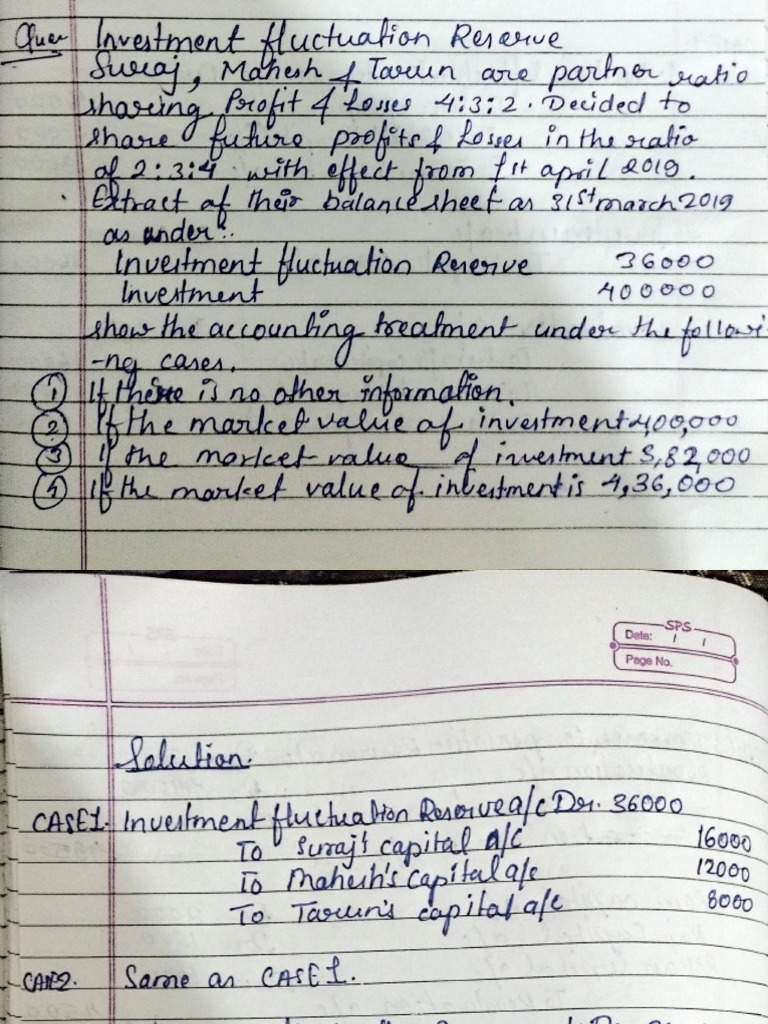 Ques Investment fluctuation Reserve
Suraj, Mahesh & Tarun are partner ratio
sharing Profit & Losses 4:3:2. Decided to
share future profits & Losses in the ratio
of 2:3:4 with effect from 1st april 2019.
Extract of their balance sheet as 31st march 2019
as under:.
Investment fluctuation Reserve 36000
Investment 400000
show the accounting treatment under the followi-
-ng cases.
① If there is no other information.
② If the market value of investment 400,000
③ If the market value of investment 3,82,000
④ If the market value of investment is 4,36,000
SPS
Date: / /
Page No.
Solution.
CASE1. Investment fluctuation Reserve a/c Dr. 36000
To Suraj's capital a/c 16000
To Mahesh's capital a/c 12000
To Tarun's capital a/c 8000
CASE2. Same as CASE1.